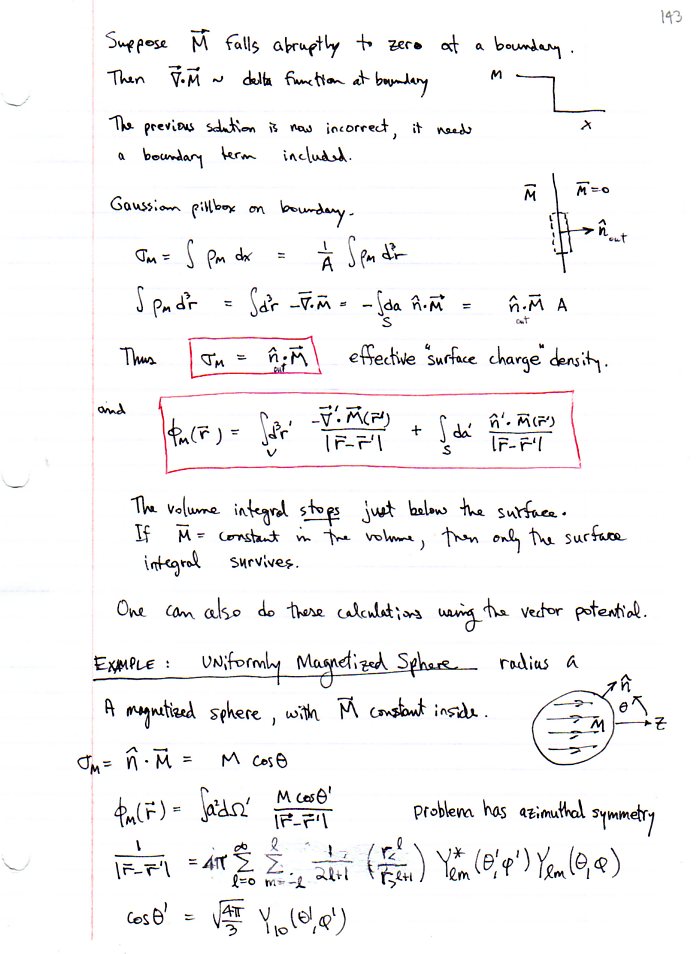 143
Suppose M⃗ falls abruptly to zero at a boundary.
Then ∇⃗·M⃗ ~ delta function at boundary
M
x
The previous solution is now incorrect, it needs
a boundary term included.
M⃗ M⃗=0
n̂ out
Gaussian pillbox on boundary.
σ_M = ∫ ρ_M dx = 1/A ∫ ρ_M d³r
∫ ρ_M d³r = ∫d³r -∇⃗·M⃗ = -∫_S da n̂·M⃗ = n̂_out·M⃗ A
Thus σ_M = n̂_out·M⃗ effective "surface charge" density.
and ϕ_M(r⃗) = ∫_V d³r' -∇⃗'·M⃗(r⃗')/|r⃗-r⃗'| + ∫_S da' n̂'·M⃗(r⃗')/|r⃗-r⃗'|
The volume integral stops just below the surface.
If M⃗ = constant in the volume, then only the surface
integral survives.
One can also do these calculations using the vector potential.
EXAMPLE: Uniformly Magnetized Sphere radius a
A magnetized sphere, with M⃗ constant inside.
n̂
θ
M⃗
z
σ_M = n̂·M⃗ = M cosθ
ϕ_M(r⃗) = ∫a²dΩ' M cosθ'/|r⃗-r⃗'| problem has azimuthal symmetry
1/|r⃗-r⃗'| = 4π ∑_{l=0}^{∞} ∑_{m=-l}^{l} 1/(2l+1) (r_<^l/r_>^{l+1}) Y*_{lm}(θ',φ') Y_{lm}(θ,φ)
cosθ' = √(4π/3) Y_{10}(θ',φ')